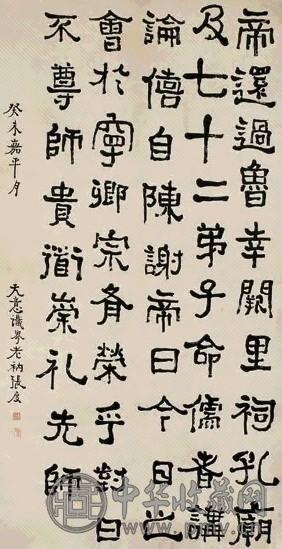 帝還過魯幸闕里祠孔廟
及七十二弟子命儒者講
論僖自陳謝帝曰今日之
會於寧卿宗有榮乎對曰
不尊師貴衟崇礼先師
癸未嘉平月
无意識界老衲張度
中华收藏网